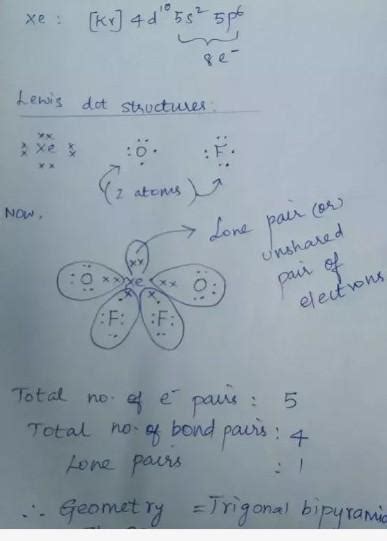 Xe : [Kr] 4d¹⁰ 5s² 5p⁶
8e⁻
Lewis dot structures:
Xe O F
(2 atoms)
Now,
Lone pair (or)
unshared
pair of
electrons
O Xe O
F F
Total no. of e⁻ pairs : 5
Total no. of bond pairs : 4
Lone pairs : 1
∴ Geometry = Trigonal bipyramid